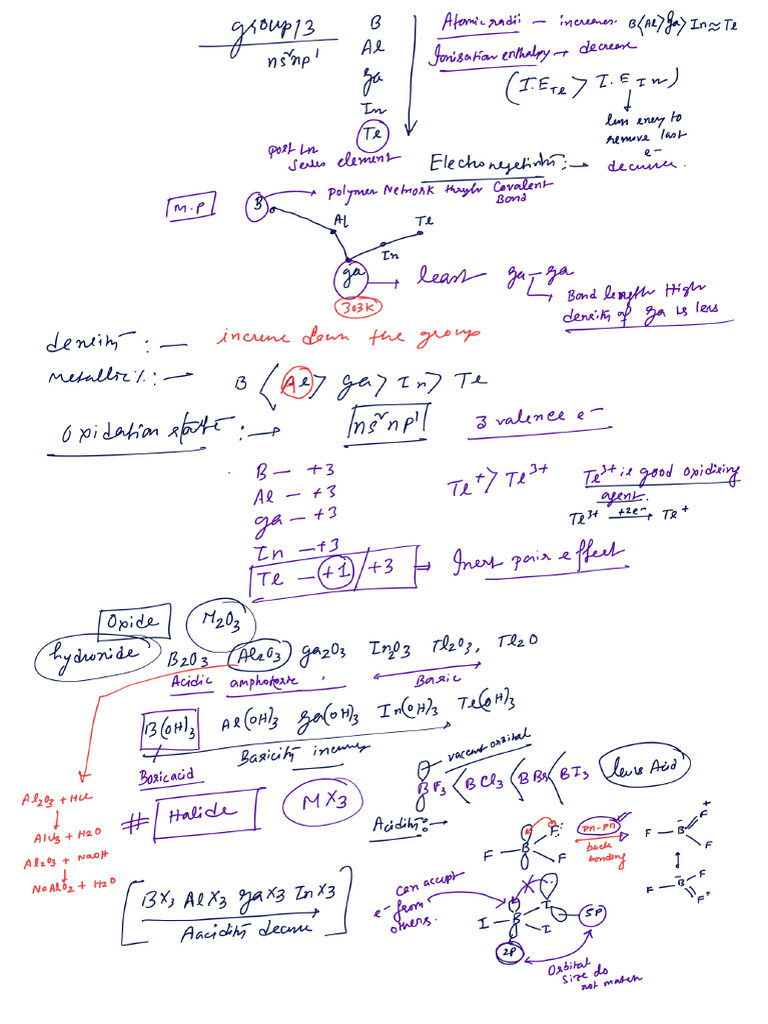 group 13
ns²np¹
B
Al
ga
In
Te
post Ln
series element
Atomic radii — increases B<Al>ga>In≈Te
Ionisation enthalpy → decrease
(I.E Te > I.E In)
less enery to
remove last
e-
Electronegetivity :→ decreases.
M.P
B → polymer Network through Covalent
Bond
Al
Te
In
ga → least ga-ga
303K
Bond length High
density of ga is less
density :— increase down the group
Metallic :→ B < Al > ga > In > Te
Oxidation state :→ ns²np¹ 3 valence e-
B — +3
Al — +3
ga — +3
In — +3
Te — +1/+3 ⇒ Inert pair effect
Te+ > Te3+
Te3+ is good oxidising
agent.
Te3+ +2e-→ Te+
Oxide M2O3
hydroxide
B2O3 Al2O3 ga2O3 In2O3 Tl2O3, Tl2O
Acidic amphoterre Basic
B(OH)3 Al(OH)3 ga(OH)3 In(OH)3 Te(OH)3
Basicity increases
Boricacid
Al2O3 + HCl
↓
AlCl3 + H2O
Al2O3 + NaOH
↓
NaAlO2 + H2O
# Halide MX3
vaccent orbital
BF3 < BCl3 < BBr3 < BI3 Lewis Acid
Acidity :→
F
B
F F
pπ-pπ
back
bonding
F-B F+
F
F-B F
F+
[BX3 AlX3 gaX3 InX3]
Aacidity decrease
can accept
e- from
others.
I B I
I
5P
2P
Orbital
size do
not match